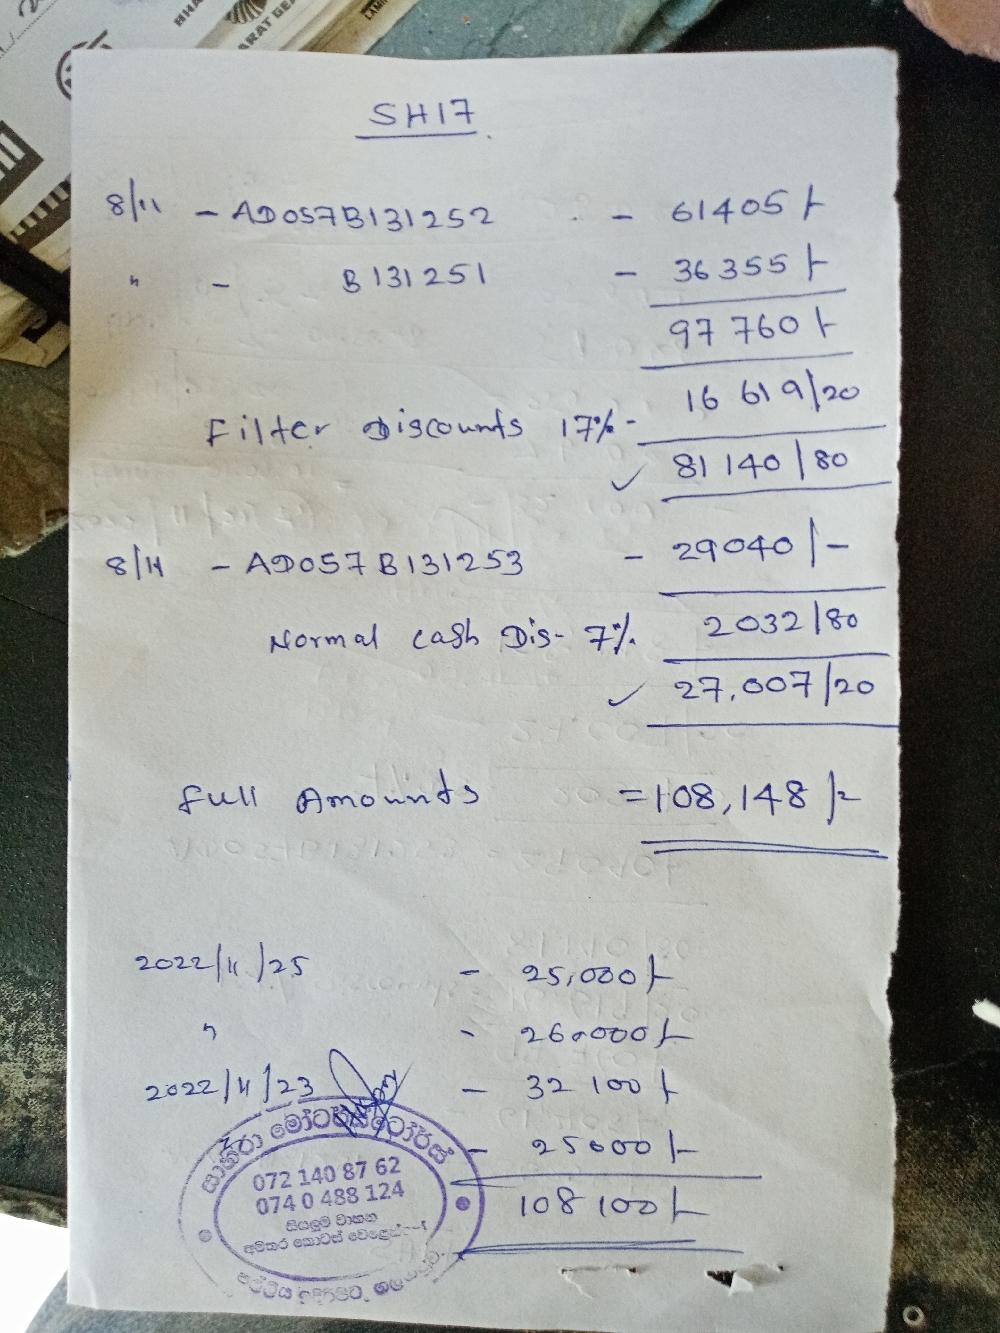 SH17
8/11 - AD057B131252 - 61405/-
" - B131251 - 36355/-
97760/-
16619/20
Filter Discounts 17% -
81140/80
8/11 - AD057B131253 - 29040/-
Normal Cash Dis- 7% 2032/80
27,007/20
Full Amounts = 108,148/-
2022/11/25 - 25,000/-
" - 26,000/-
2022/11/23 - 32100/-
- 25000/-
108100/-
මෝටර්
072 140 87 62
074 0 488 124
සියලුම වාහන
අමතර කොටස්